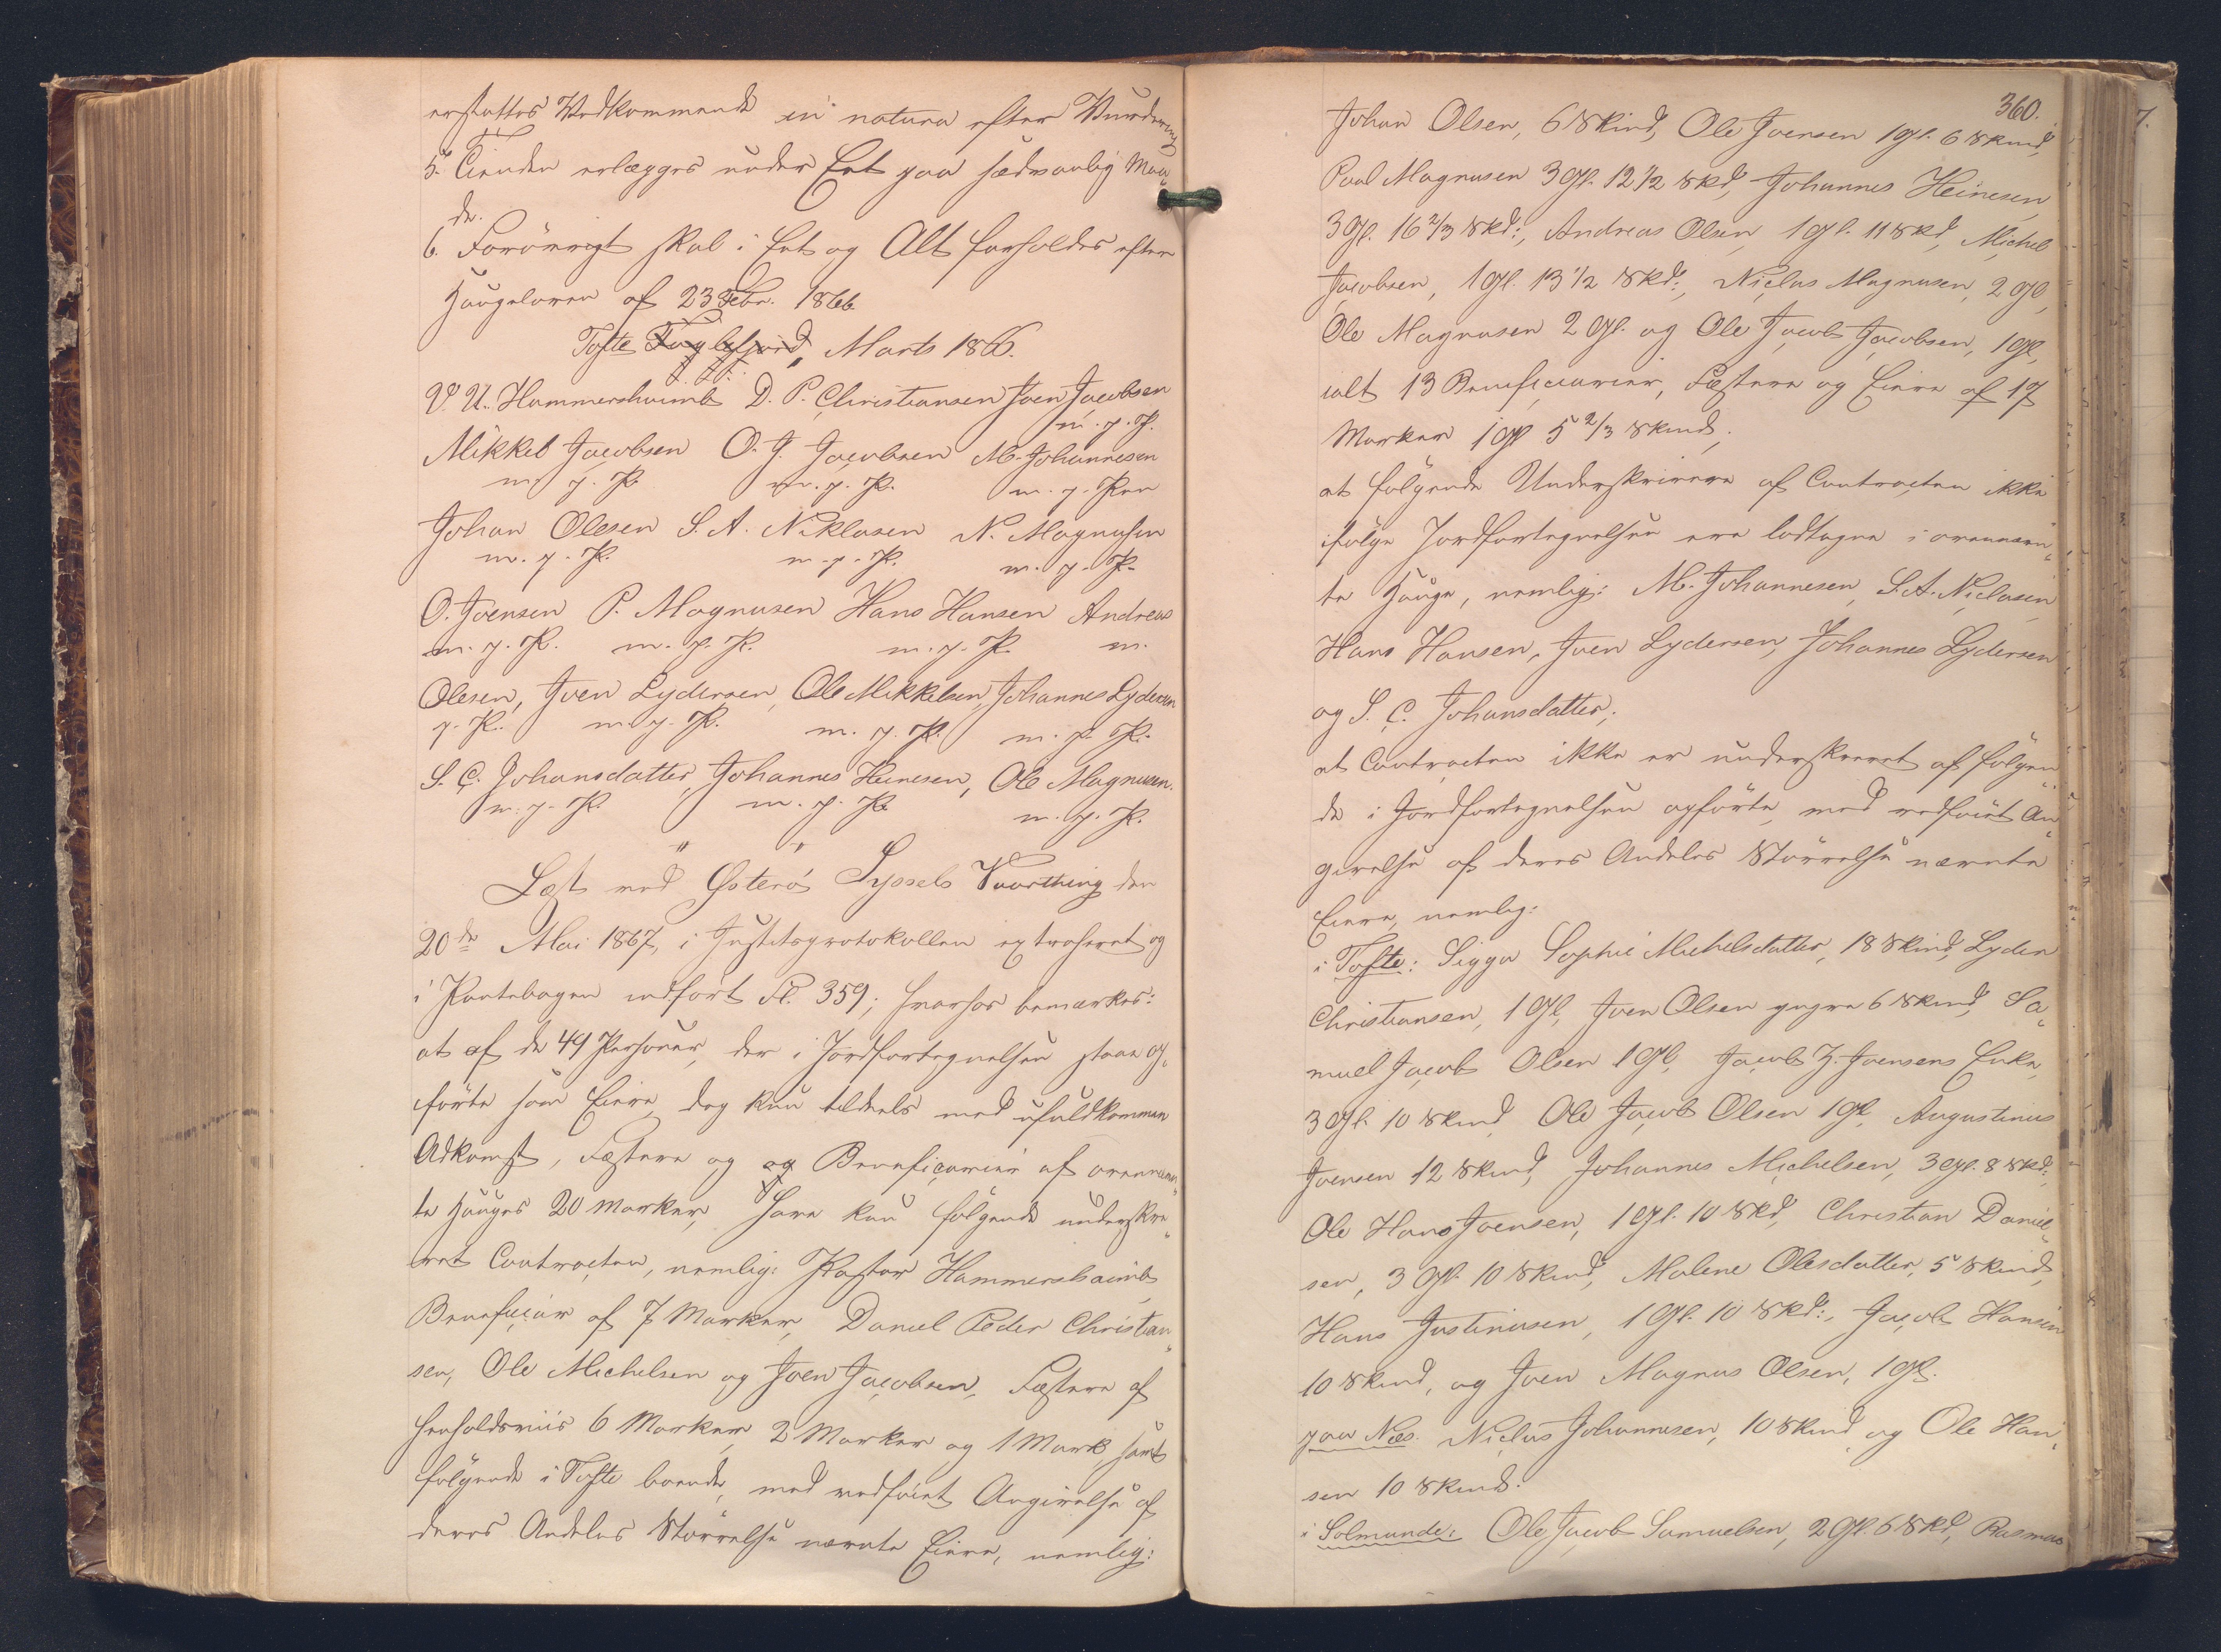 erstattes Vedkommende in natura efter Vurdering
5. Tienden erlægges under Eet paa sædvanlig Maa„
de.
6. Forövrigt skal i Eet og Alt forholdes efter
Haugeloven af 23 Febr. 1866.
Tofte Fuglefjord, Marts 1866.
V. U. Hammershaimb D. P. Christiansen Joen Jacobsen
m. p. P.
Mikkel Jacobsen O. J. Jacobsen M. Johannesen
m. p. P. m. p. P. m. p. Pen
Johan Olesen S. A. Niklasen N. Magnusen
m. p. P. m. p. P. m. p. P.
O. Joensen P. Magnusen Hans Hansen Andreas
m. p. P. m. p. P. m. p. P. m.
Olesen, Joen Lydersen, Ole Mikkelsen, Johannes Lydersen
p. P. m. p. P. m. p. P. m. p. P.
S. C. Johansdatter, Johannes Heinesen, Ole Magnusen.
m. p. P. m. p. P. m. p. P.
" "
Læst ved Österö Syssels Vaarthing den
20de Mai 1867, i Justitsprotokollen extraheret og
i Pantebogen indfört Fl. 359; hvorhos bemærkes:
at af de 49 Personer, der i Jordfortegnelsen staae op„
förte som Eiere, dog kun tildeels med ufuldkommen
Adkomst, Fæstere og og Beneficiarier af ovennævn„
te Hauges 20 Marker, have kun fölgende underskre„
vet Contracten, nemlig: Pastor Hammershaimb,
Beneficiar af 7 Marker, Daniel Peder Christian„
sen, Ole Michelsen og Joen Jacobsen, Fæstere af
henholdsviis 6 Marker, 2 Marker og 1 Mark, samt
fölgende i Tofte boende, med vedföiet Angivelse af
deres Andeles Störrelse nævnte Eiere, nemlig:
360.
Johan Olsen, 6 Skind, Ole Joensen 1 Gl. 6 Skind,
Poul Magnusen 3 Gl. 12 1/2 Skd, Johannes Heinesen
3 Gl. 16 2/3 Skd:, Andreas Olsen, 1 Gl. 11 Skd, Michel
Jacobsen, 1 Gl. 13 1/2 Skd:, Niclas Magnusen, 2 Gl,
Ole Magnusen 2 Gl. og Ole Jacob Jacobsen, 1 Gl,
ialt 13 Beneficiarier, Fæstere og Eiere af 17
Marker 1 Gl 5 2/3 Skind;
at fölgende Underskrivere af Contracten ikke
ifölge Jordfortegnelsen ere lodtagne i ovennævn„
te Hauge, nemlig: M. Johannesen, S. A. Niclasen
Hans Hansen, Joen Lydersen, Johannes Lydersen
og S. C. Johansdatter;
at Contracten ikke er underskrevet af fölgen„
de i Jordfortegnelsen opförte, med vedföiet An„
givelse af deres Andeles Störrelse nævnte
Eiere, nemlig:
i Tofte: Sigga Sophie Michelsdatter, 18 Skind, Lyder
Christiansen, 1 Gl, Joen Olsen yngre 6 Skind, Sa„
muel Jacob Olsen 1 Gl, Jacob J. Joensens Enke,
3 Gl. 10 Skind, Ole Jacob Olsen 1 Gl, Augustinus
Joensen 12 Skind, Johannes Michelsen, 3 Gl. 8 Skd:,
Ole Hans Joensen, 1 Gl. 10 Skd, Christian Daniel„
sen, 3 Gl. 10 Skind, Malene Olesdatter, 5 Skind,
Hans Justinusen, 1 Gl. 10 Skd:, Jacob Hansen
10 Skind, og Joen Magnus Olsen, 1 Gl.
paa Næs. Niclas Johannesen, 10 Skind og Ole Han„
sen 10 Skind.
i Solmunde: Ole Jacob Samuelsen, 2 Gl. 6 Skd, Rasmus